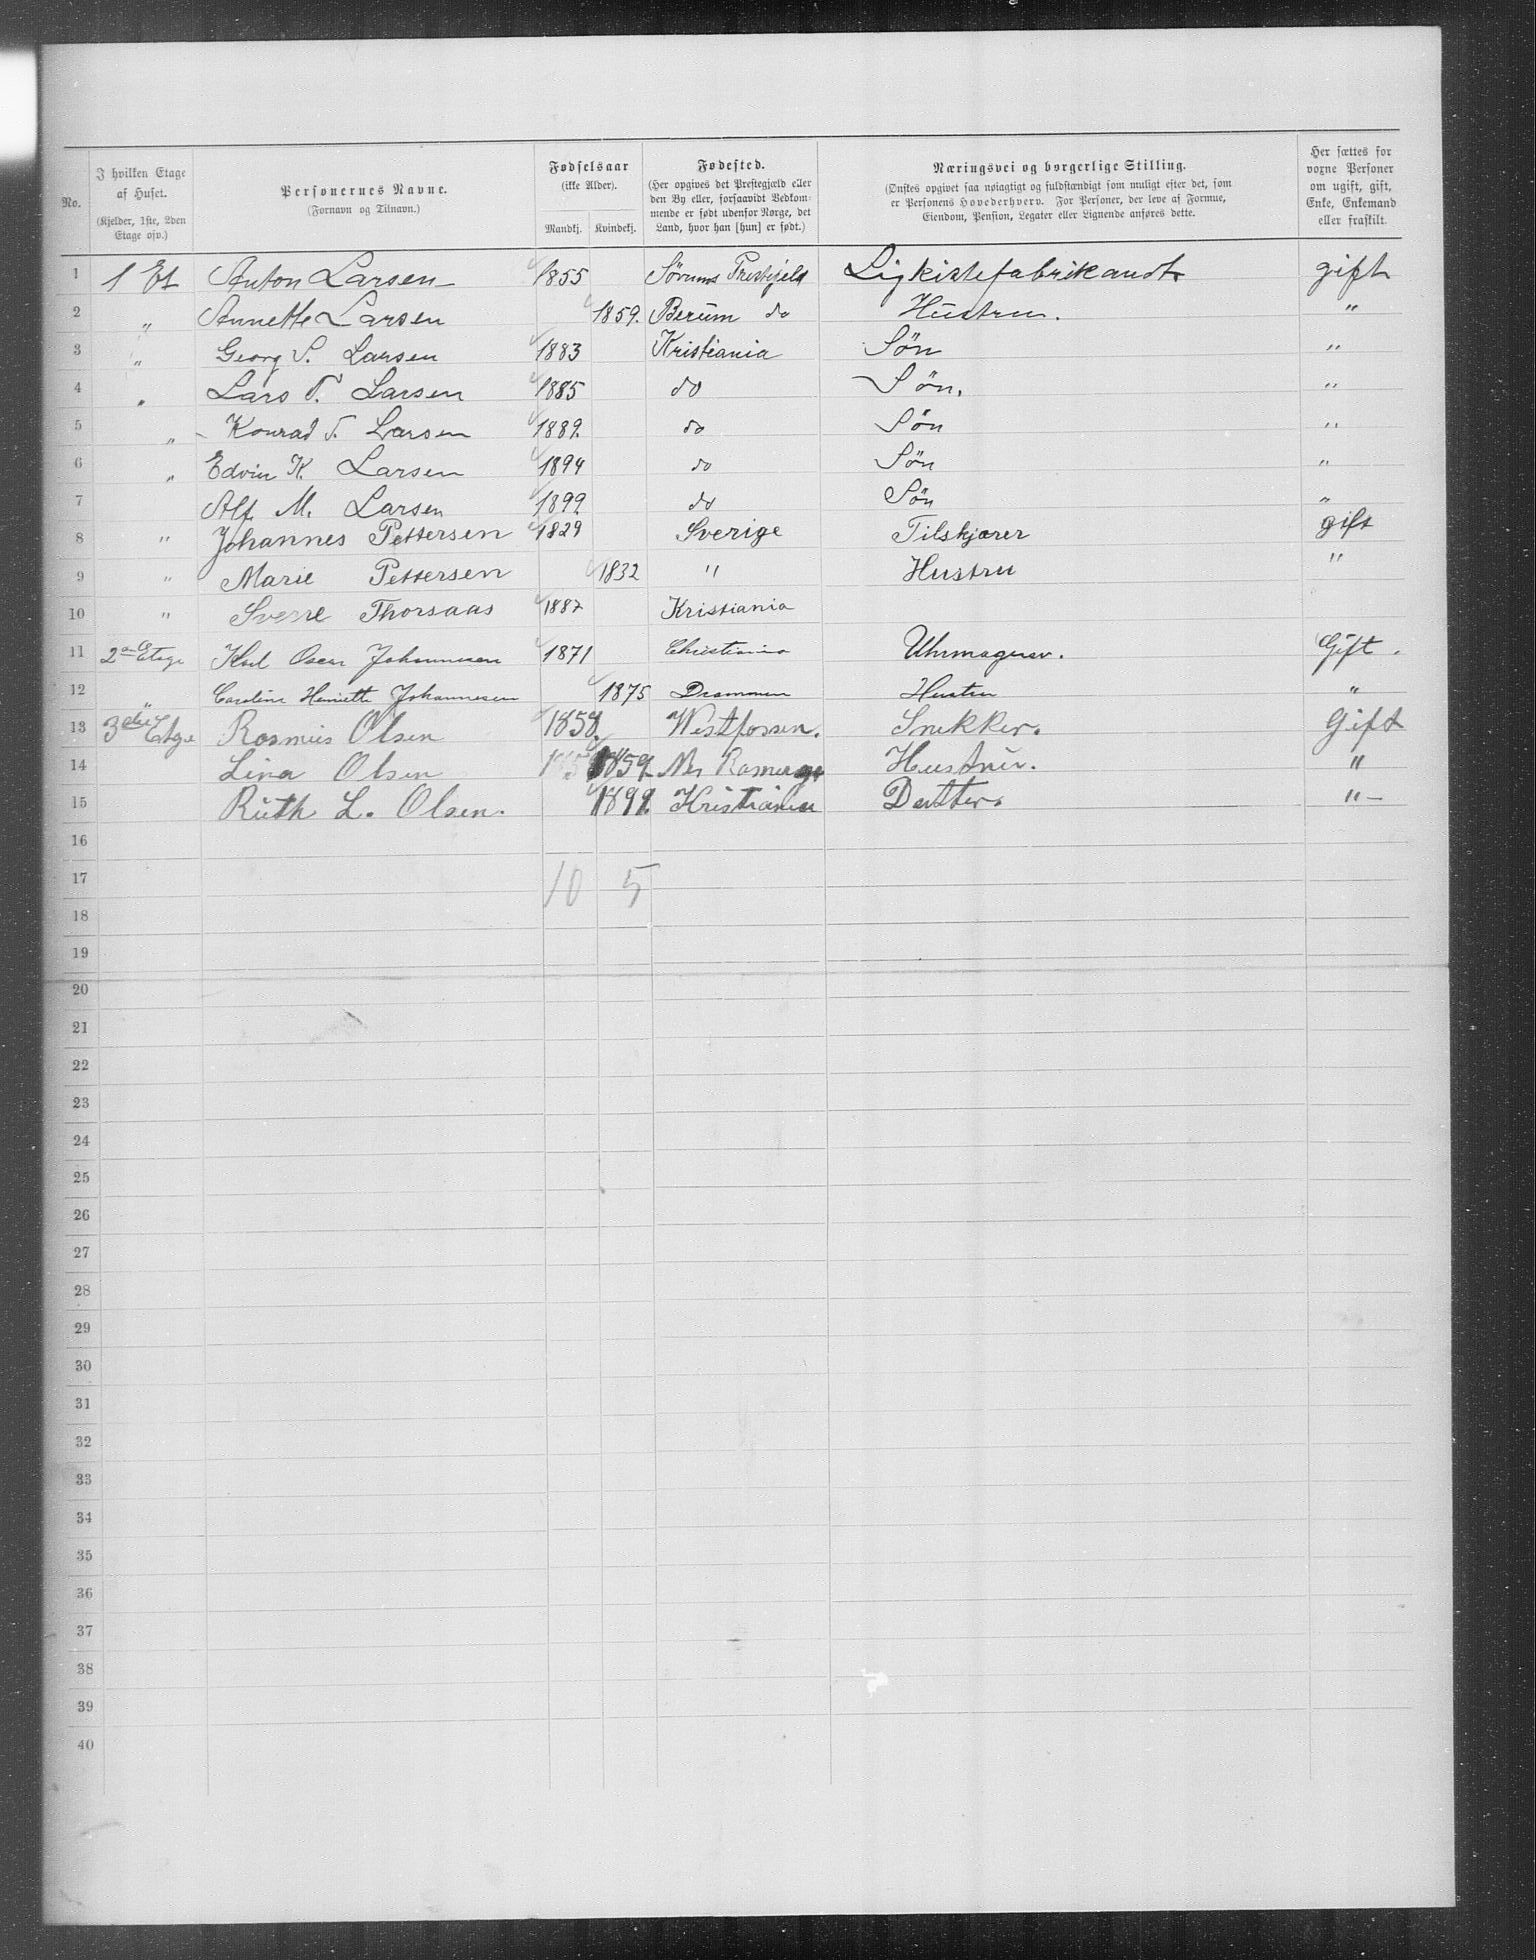 No. | I hvilken Etage af Huset. (Kjelder, 1ste, 2den Etage osv.) | Personernes Navne. (Fornavn og Tilnavn.) | Fødselsaar (ikke Alder). Mandkj. | Kvindekj. | Fødested. (Her opgives det Prestegjæld eller den By eller, forsaavidt Vedkommende er født udenfor Norge, det Land, hvor han [hun] er født.) | Næringsvei og borgerlige Stilling. (Ønskes opgivet saa nøiagtigt og fuldstændigt som muligt efter det, som er Personens Hovederhverv. For Personer, der leve af Formue, Eiendom, Pension, Legater eller Lignende anføres dette. | Her sættes for voxne Personer om ugift, gift, Enke, Enkemand eller fraskilt.
1 | 1 Et | Anton Larsen | 1855 | | Sørums Prestegjeld | Ligkistefabrikandt | gift
2 | " | Annette Larsen | | 1859. | Berüm do | Hustru. | "
3 | " | Georg S. Larsen | 1883 | | Kristiania | Søn | "
4 | " | Lars T. Larsen | 1885 | | do | Søn. | "
5 | " | Konrad T. Larsen | 1889. | | do | Søn | "
6 | " | Edvin K. Larsen | 1894 | | do | Søn | "
7 | | Alf. M. Larsen | 1899 | | do | Søn | "
8 | " | Johannes Pettersen | 1829 | | Sverige | Tilskjærer | gift
9 | " | Marie Pettersen | | 1832 | " | Hustru | "
10 | " | Sverre Thorsaas | 1887 | | Kristiania
11 | 2en Etage | Karl Oscar Johannesen | 1871 | | Christiania | Uhrmager. | Gift.
12 | " | Caroline Henriette Johannesen | | 1875 | Drammen | Hustru | "
13 | 3die Etage | Rasmus Olsen | 1858. | | Westfossen. | Snekker. | Gift
14 | | Lina Olsen | | 1859. | Nes Romerge | Hustru. | "
15 | | Ruth L. Olsen. | | 1899. | Kristiania | Datter. | " –
16
17 | | | 10 | 5
18
19
20
21
22
23
24
25
26
27
28
29
30
31
32
33
34
35
36
37
38
39
40